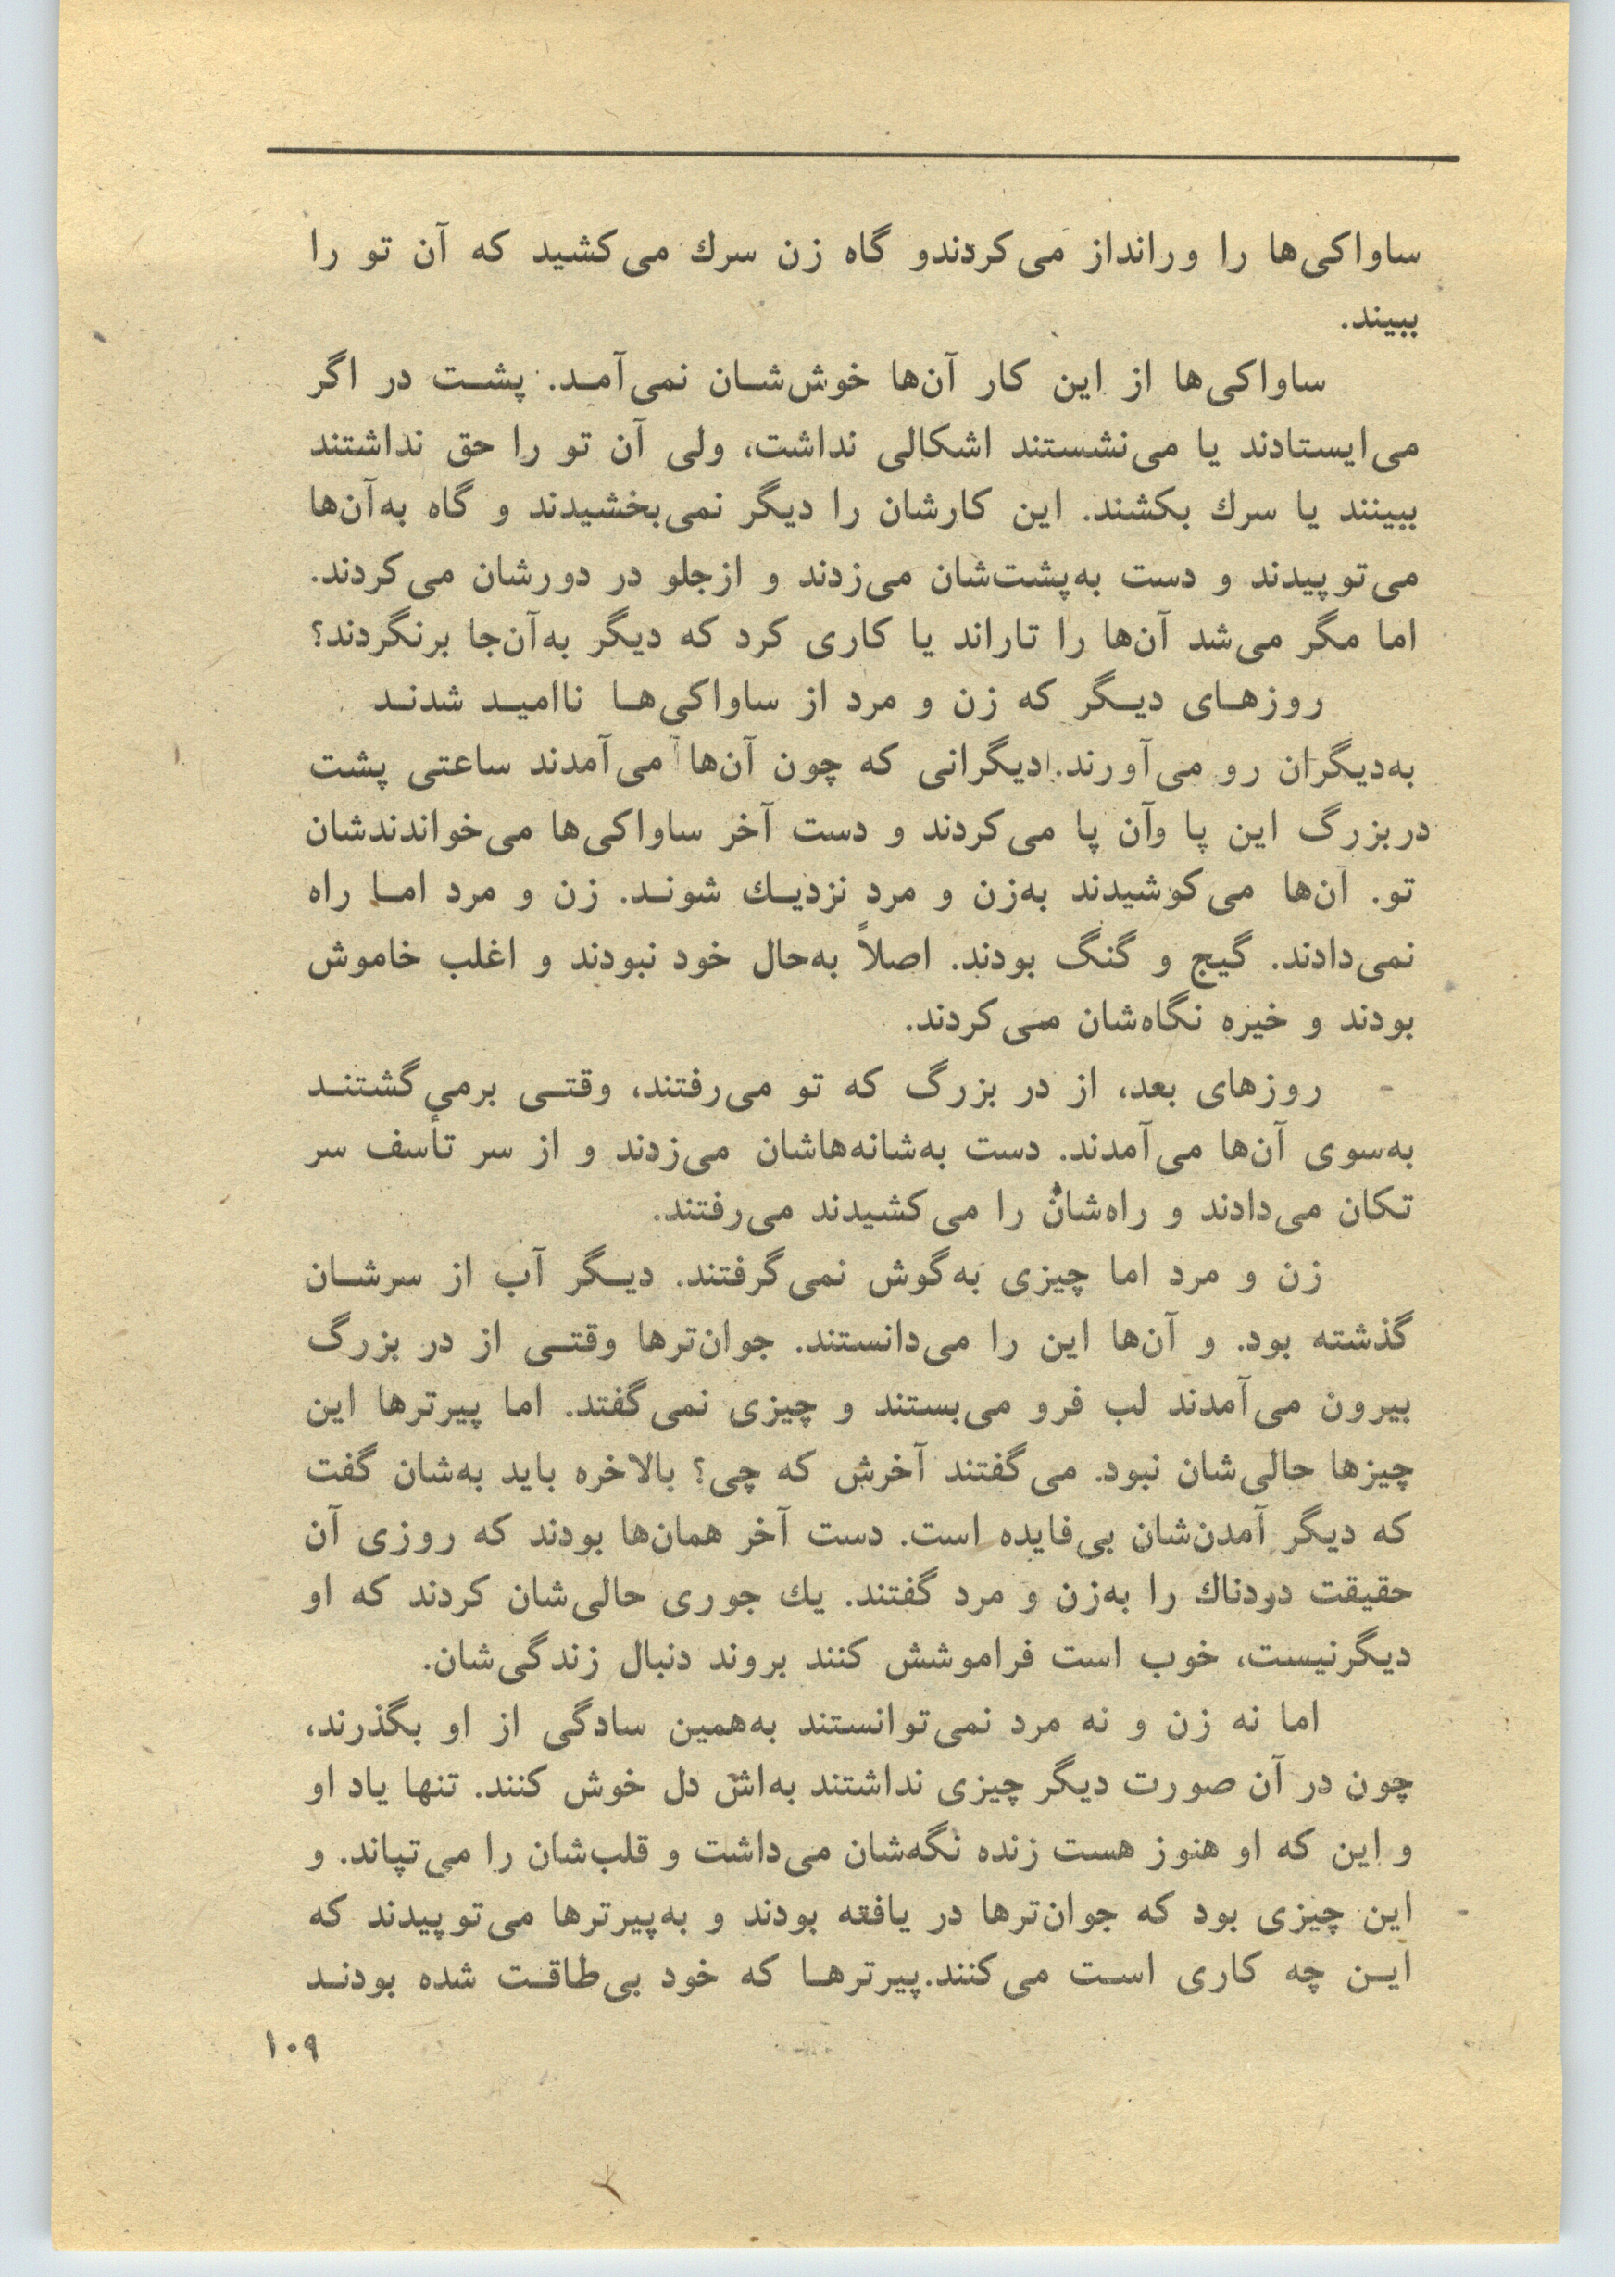 ساواکی‌ها را ورانداز می‌کردندو گاه زن سرك می‌کشید که آن تو را
ببیند.
ساواکی‌ها از این کار آن‌ها خوش‌شـان نمی‌آمـد. پشـت در اگر
می‌ایستادند یا می‌نشستند اشکالی نداشت، ولی آن تو را حق نداشتند
ببینند یا سرك بکشند. این کارشان را دیگر نمی‌بخشیدند و گاه به‌آن‌ها
می‌توپیدند و دست به‌پشت‌شان می‌زدند و ازجلو در دورشان می‌کردند.
اما مگر می‌شد آن‌ها را تاراند یا کاری کرد که دیگر به‌آن‌جا برنگردند؟
روزهـای دیـگر که زن و مرد از ساواکی‌هـا ناامیـد شدنـد
به‌دیگران رو می‌آورند. دیگرانی که چون آن‌ها می‌آمدند ساعتی پشت
دربزرگ این پا وآن پا می‌کردند و دست آخر ساواکی‌ها می‌خواندندشان
تو. آن‌ها می‌کوشیدند به‌زن و مرد نزدیـك شونـد. زن و مرد امـا راه
نمی‌دادند. گیج و گنگ بودند. اصلاً به‌حال خود نبودند و اغلب خاموش
بودند و خیره نگاه‌شان می‌کردند.
- روزهای بعد، از در بزرگ که تو می‌رفتند، وقتـی برمی‌گشتنـد
به‌سوی آن‌ها می‌آمدند. دست به‌شانه‌هاشان می‌زدند و از سر تأسف سر
تکان می‌دادند و راه‌شان را می‌کشیدند می‌رفتند.
زن و مرد اما چیزی به‌گوش نمی‌گرفتند. دیـگر آب از سرشـان
گذشته بود. و آن‌ها این را می‌دانستند. جوان‌ترها وقتـی از در بزرگ
بیرون می‌آمدند لب فرو می‌بستند و چیزی نمی‌گفتد. اما پیرترها این
چیزها حالی‌شان نبود. می‌گفتند آخرش که چی؟ بالاخره باید به‌شان گفت
که دیگر آمدن‌شان بی‌فایده است. دست آخر همان‌ها بودند که روزی آن
حقیقت دردناك را به‌زن و مرد گفتند. یك جوری حالی‌شان کردند که او
دیگرنیست، خوب است فراموشش کنند بروند دنبال زندگی‌شان.
اما نه زن و نه مرد نمی‌توانستند به‌همین سادگی از او بگذرند،
چون در آن صورت دیگر چیزی نداشتند به‌اش دل خوش کنند. تنها یاد او
و این که او هنوز هست زنده نگه‌شان می‌داشت و قلب‌شان را می‌تپاند. و
این چیزی بود که جوان‌ترها در یافته بودند و به‌پیرترها می‌توپیدند که
ایـن چه کاری اسـت می‌کنند.پیرترهـا که خود بی‌طاقـت شده بودنـد
۱۰۹